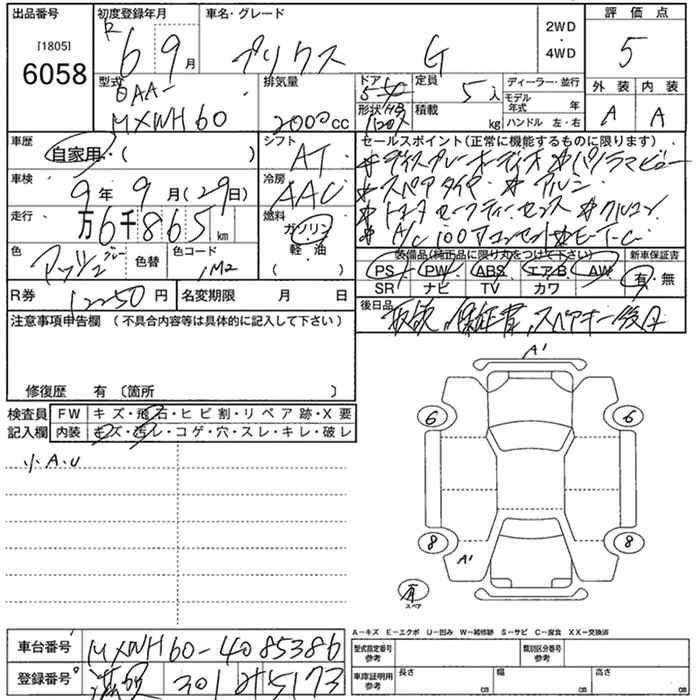 出品番号 初度登録年月 車名・グレード 2WD ・ 4WD 評価点
[1805] 6058 R6 9月 プリウス G 5
型式 排気量 ドア 定員 ディーラー・並行 外装 内装
6AA- MXWH60 2000cc 5 5人 モデル年式 年 A A
形状 積載 kg ハンドル 左・右
車歴 自家用・( ) シフト AT
セールスポイント(正常に機能するものに限ります)
車検 9年9月(29日) 冷房 AAC
*ディスプレーオーディオ *パノラマビュー
*スペアタイヤ *アルミ
走行 万6千865km 燃料 ガソリン 軽・油 ( )
*トヨタセーフティーセンス *クルコン
*A/C 100Vコンセント *E-T-C
色 アッシュ グレー 色替 色コード 1M2
装備品(純正品に限り丸をつけて下さい) 新車保証書
PS PW ABS エアB AW 有・無
SR ナビ TV カワ
R券 12250円 名変期限 月 日
後日品 取説、保証書、スペアキー後日
注意事項申告欄 (不具合内容等は具体的に記入して下さい)
修復歴 有 〔箇所 〕
検査員記入欄 FW キズ・飛石・ヒビ割・リペア跡・X要
内装 キズ・汚レ・コゲ・穴・スレ・キレ・破レ
小A、U
A'
6 6
8 8
A'
有
スペア
A-キズ E-エクボ U-凹み W-補修跡 S-サビ C-腐食 XX-交換済
車台番号 MXWH60-4085386
型式指定番号 参考 類別区分番号 参考
登録番号 301 5173
車庫証明用 参考 長さ cm 幅 cm 高さ cm